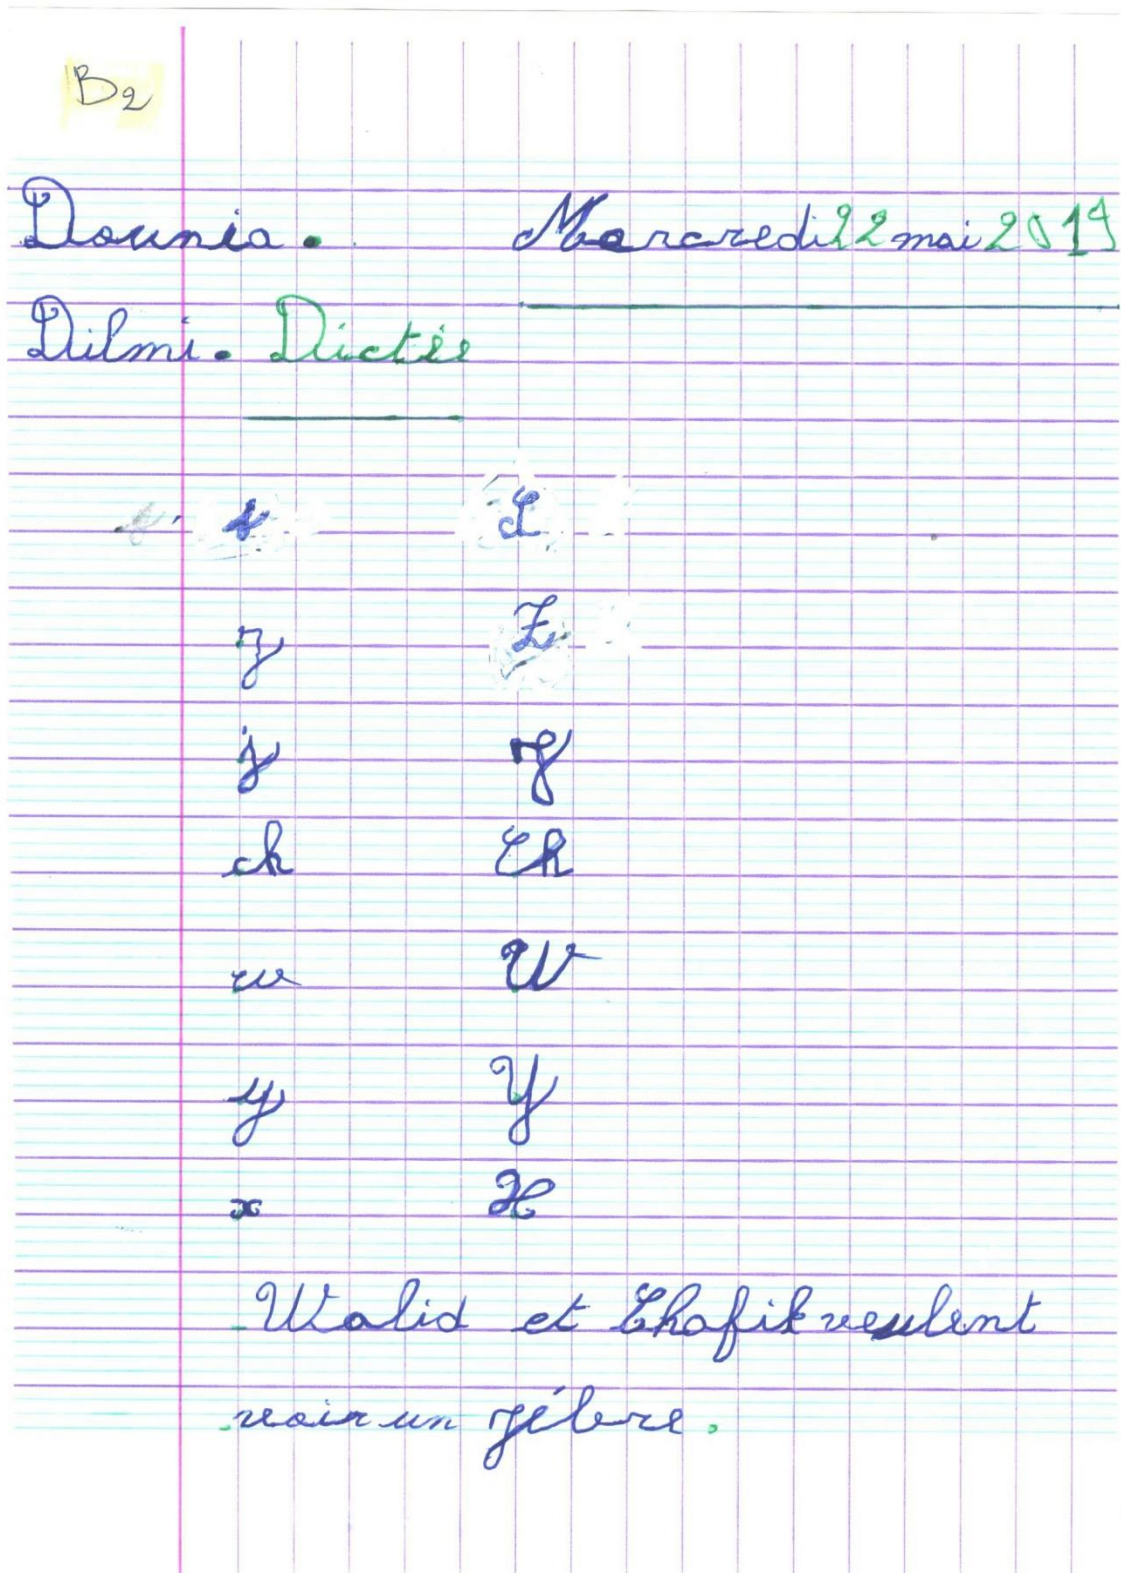 B2
Dounia. Marcredi 22 mai 2019
Dilmi. Dictée
s S
z Z
j J
ch Ch
w W
y Y
x X
Walid et Chafik veulent
voir un zébre.